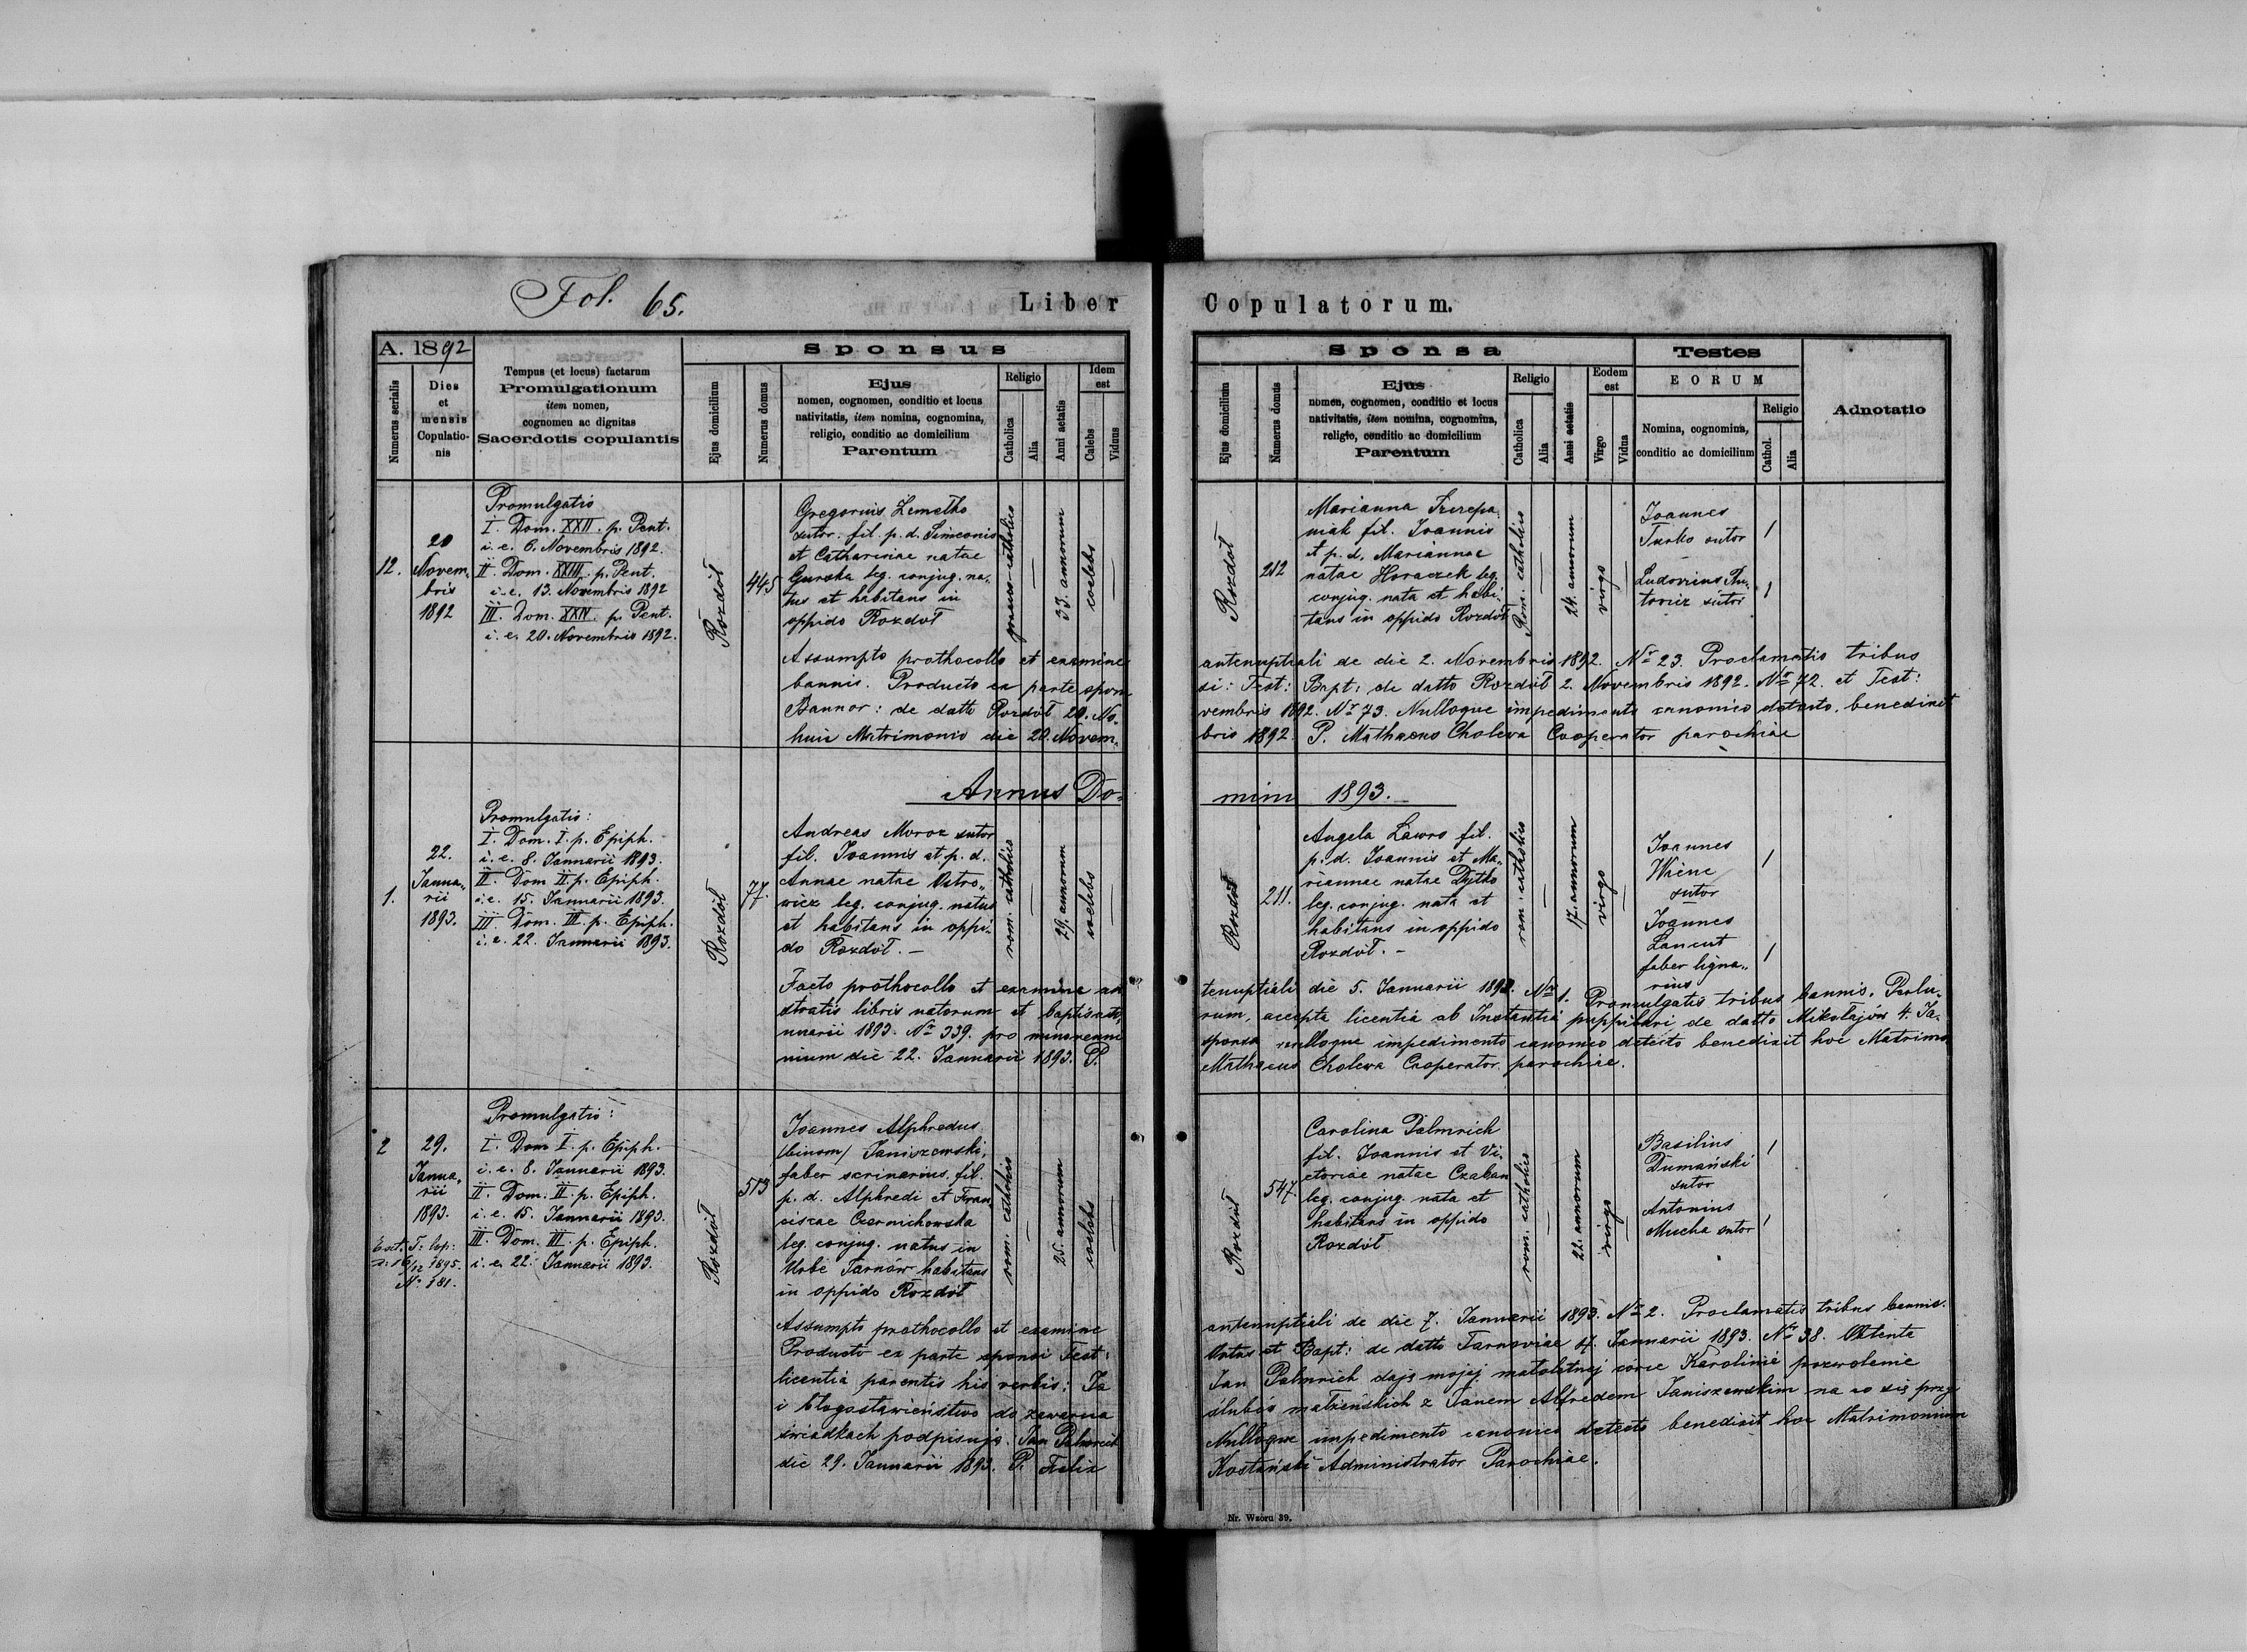 Fol. 65.
Liber
Copulatorum.
A. 1892
Numerus serialis
Dies
et
mensis
Copulatio-
nis
Tempus (et locus) factarum
Promulgationum
item nomen,
cognomen ac dignitas
Sacerdotis copulantis
Sponsus
Ejus domicilium
Numerus domus
Ejus
nomen, cognomen, conditio et locus
nativitatis, item nomina, cognomina,
religio, conditio ac domicilium
Parentum
Religio
Catholica
Alia
Anni aetatis
Idem
est
Calebs
Viduus
Sponsa
Ejus domicilium
Numerus domus
Ejus
nomen, cognomen, conditio et locus
nativitatis, item nomina, cognomina,
religio, conditio ac domicilium
Parentum
Religio
Catholica
Alia
Anni aetatis
Eodem
est
Virgo
Vidua
Testes
EORUM
Nomina, cognomina,
conditio ac domicilium
Religio
Cathol.
Alia
Adnotatio
12.
20
Novem,
bris
1892
Promulgatio
I. Dom. XXII. p. Pent.
i. e. 6. Novembris 1892.
II. Dom. XXIII. p. Pent.
i. e. 13. Novembris 1892
III. Dom. XXIV. p. Pent.
i. e. 20. Novembris 1892.
Rozdół
445
Gregorius Zemełko
sutor. fil. p. d. Simeonis
et Catharinae natae
leg. conjug. na,
tus et habitans in
oppido Rozdół
graeco-catholica
33. annorum
coelebs
Rozdół
212
Marianna Szczepa,
niak fil. Joannis
et p. d. Mariannae
natae Horaczek leg.
conjug. nata et habi,
tans in oppido Rozdół
Rom. catholica
24. annorum
virgo
Joannes
Turko sutor
Ludovicus An,
towicz sutor
Assumpto prothocollo et examine antenuptiali de die 2. Novembris 1892. Nr 23. Proclamatis tribus
bannis. Producto ex parte spon si: Test: Bapt: de datto Rozdół 2. Novembris 1892. Nr 72. et Test:
Bannor: de datto Rozdół 20. No, vembris 1892. Nr 73. Nulloque impedimento canonico detecto, benedixit
huic Matrimonio die 20. Novem, bris 1892. P. Mathaeus Cholewa Cooperator parochiae
Annus Do, mini 1893.
1.
22.
Janua,,
rii
1893.
Promulgatio:
I. Dom. I. p. Epiph.
i. e. 8. Januarii 1893.
II. Dom II. p. Epiph.
i. e. 15. Januarii 1893.
III. Dom. III. p. Epiph.
i. e. 22. Januarii 1893.
Rozdół
77.
Andreas Moroz sutor
fil. Joannis et p. d.
Annae natae Ostro,,
wicz leg. conjug. natus
et habitans in oppi,
do Rozdół. –
rom. catholica
29. annorum
coelebs
Rozdół
211.
Angela Ławro fil.
p. d. Joannis et Ma,,
riannae natae Dytko
leg. conjug. nata et
habitans in oppido
Rozdół. –
rom. catholica
17. annorum
virgo
Joannes
sutor
Joannes
Łancut
faber ligna,,
rius
Facto prothocollo et examine an tenuptiali die 5. Januarii 1893. Nr 1. Promulgatis tribus bannis. Perlu,
stratis libris natorum et baptisato, rum, accepta licentia ab Instantia puppilari de datto Mikołajów 4. Ja,
nuarii 1893. Nr 339. pro minorenni sponsa nulloque impedimento canonico detecto benedixit hoc Matrimo
nium die 22. Januarii 1893. P. Mathaeus Cholewa Cooperator parochiae.
2
29.
Janua,
rii
1893.
Promulgatio:
I. Dom I. p. Epiph.
i. e. 8. Januarii 1893.
II. Dom. II. p. Epiph.
i. e. 15. Januarii 1893.
III. Dom. III. p. Epiph.
i. e. 22. Januarii 1893.
1895.
Nr 181.
Rozdół
513
Joannes Alphredus
/binom/ Janiszewski,
faber scrinarius, fil.
p. d. Alphredi et Fran,
ciscae Czernichowska
leg. conjug. natus in
Urbe Tarnów habitans
in oppido Rozdół
rom. catholica
25. annorum
coelebs
Rozdół
547.
Carolina Palmrich
fil. Joannis et Vi,
ctoriae natae Czaban
leg. conjug. nata et
habitans in oppido
Rozdół
rom. catholica
22. annorum
virgo
Basilius
Dumański
sutor
Antonius
Mucha sutor
Assumpto prothocollo et examine antenuptiali de die 7. Januarii 1893. Nr 2. Proclamatis tribus bannis.
Producto ex parte sponsi Test: Ortus et Bapt: de datto Tarnoviae 4. Januarii 1893. Nr 38. Obtenta
licentia parentis his verbis: Ja Jan Palmrich daję mojej małoletnej córce Karolinie pozwolenie
i błogosławieństwo do zawarcia ślubów małżeńskich z Janem Alfredem Janiszewskim na co się przy
świadkach podpisuję. Jan Palmrich Nulloque impedimento canonico detecto benedixit hoc Matrimonium
die 29. Januarii 1893. P. Felix Administrator Parochiae.
Nr. Wzoru 39.